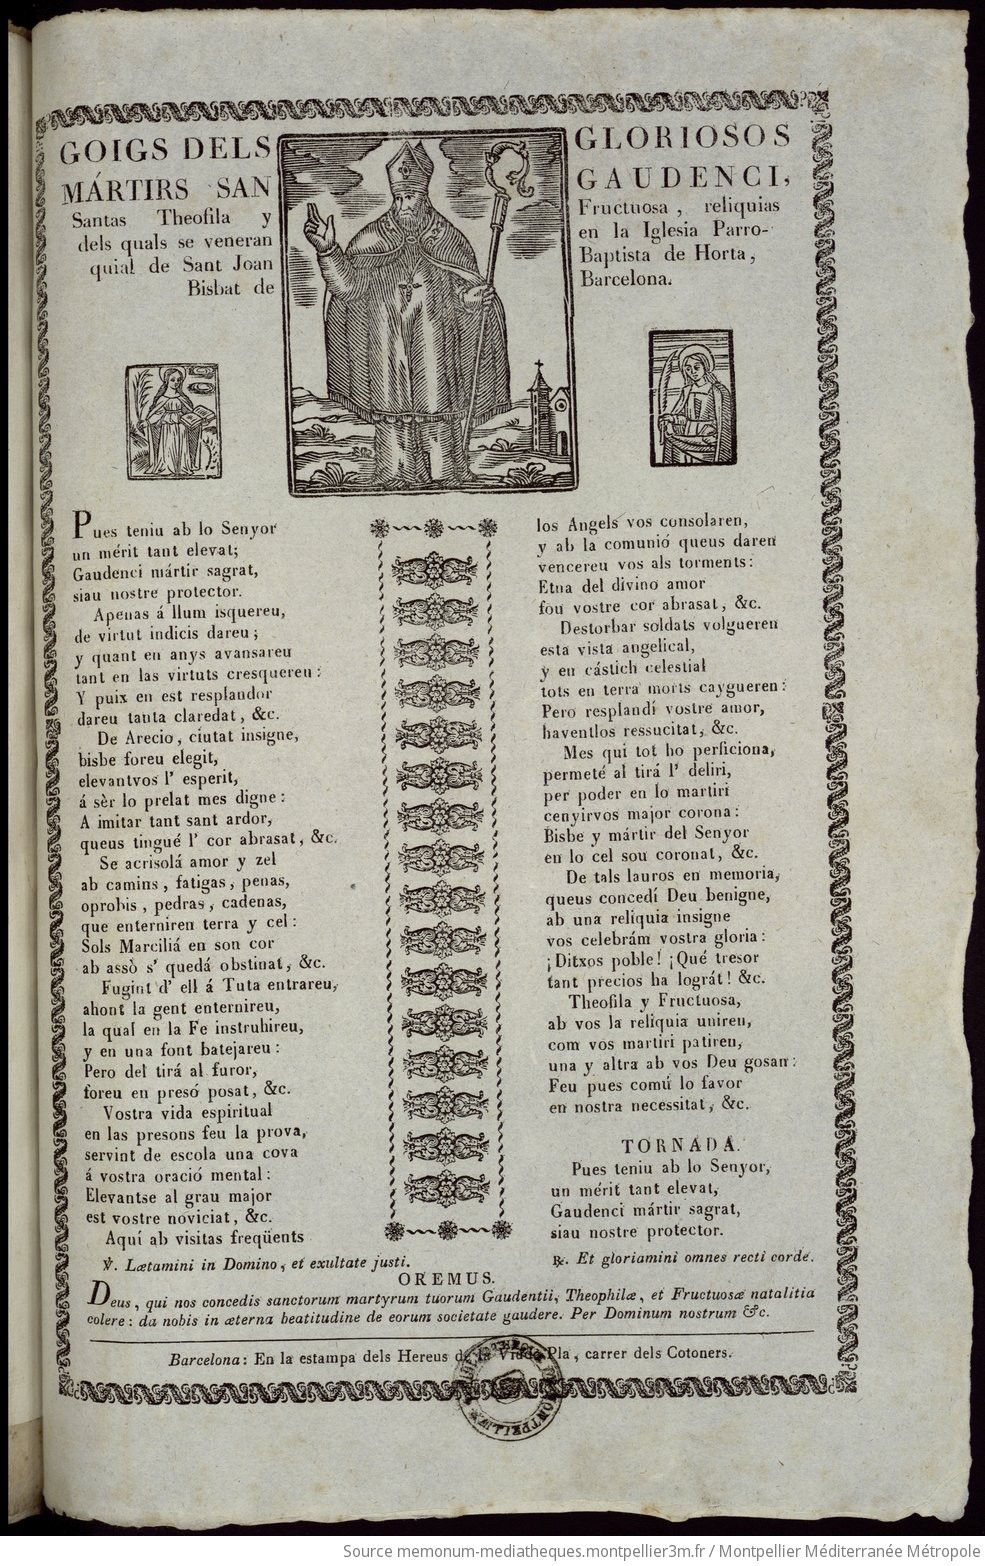 GOIGS DELS GLORIOSOS
MÁRTIRS SAN GAUDENCI,
Santas Theofila y Fructuosa, reliquias
dels quals se veneran en la Iglesia Parro-
quial de Sant Joan Baptista de Horta,
Bisbat de Barcelona.
Pues teniu ab lo Senyor
un mérit tant elevat;
Gaudenci mártir sagrat,
siau nostre protector.
Apenas á llum isquereu,
de virtut indicis dareu;
y quant en anys avansareu
tant en las virtuts cresquereu:
Y puix en est resplandor
dareu tanta claredat, &c.
De Arecio, ciutat insigne,
bisbe foreu elegit,
elevantvos l' esperit,
á sèr lo prelat mes digne:
A imitar tant sant ardor,
queus tingué l' cor abrasat, &c.
Se acrisolá amor y zel
ab camins, fatigas, penas,
oprobis, pedras, cadenas,
que enterniren terra y cel:
Sols Marciliá en son cor
ab assò s' quedá obstinat, &c.
Fugint d' ell á Tuta entrareu,
ahont la gent enternireu,
la qual en la Fe instruhireu,
y en una font batejareu:
Pero del tirá al furor,
foreu en presó posat, &c.
Vostra vida espiritual
en las presons feu la prova,
servint de escola una cova
á vostra oració mental:
Elevantse al grau major
est vostre noviciat, &c.
Aquí ab visitas freqüents
los Angels vos consolaren,
y ab la comunió queus daren
vencereu vos als torments:
Etna del divino amor
fou vostre cor abrasat, &c.
Destorbar soldats volgueren
esta vista angelical,
y en cástich celestial
tots en terra morts caygueren:
Pero resplandí vostre amor,
haventlos ressucitat, &c.
Mes qui tot ho perficiona,
permeté al tirá l' deliri,
per poder en lo martiri
cenyirvos major corona:
Bisbe y mártir del Senyor
en lo cel sou coronat, &c.
De tals lauros en memoria,
queus concedí Deu benigne,
ab una reliquia insigne
vos celebrám vostra gloria:
¡Ditxos poble! ¡Qué tresor
tant precios ha lográt! &c.
Theofila y Fructuosa,
ab vos la reliquia uniren,
com vos martiri patiren,
una y altra ab vos Deu gosan:
Feu pues comú lo favor
en nostra necessitat, &c.
TORNADA.
Pues teniu ab lo Senyor,
un mérit tant elevat,
Gaudenci mártir sagrat,
siau nostre protector.
℣. Lætamini in Domino, et exultate justi. ℟. Et gloriamini omnes recti corde.
OREMUS.
Deus, qui nos concedis sanctorum martyrum tuorum Gaudentii, Theophilæ, et Fructuosæ natalitia
colere: da nobis in æterna beatitudine de eorum societate gaudere. Per Dominum nostrum &c.
Barcelona: En la estampa dels Hereus de la Viuda Pla, carrer dels Cotoners.
Source memonum-mediatheques.montpellier3m.fr / Montpellier Méditerranée Métropole